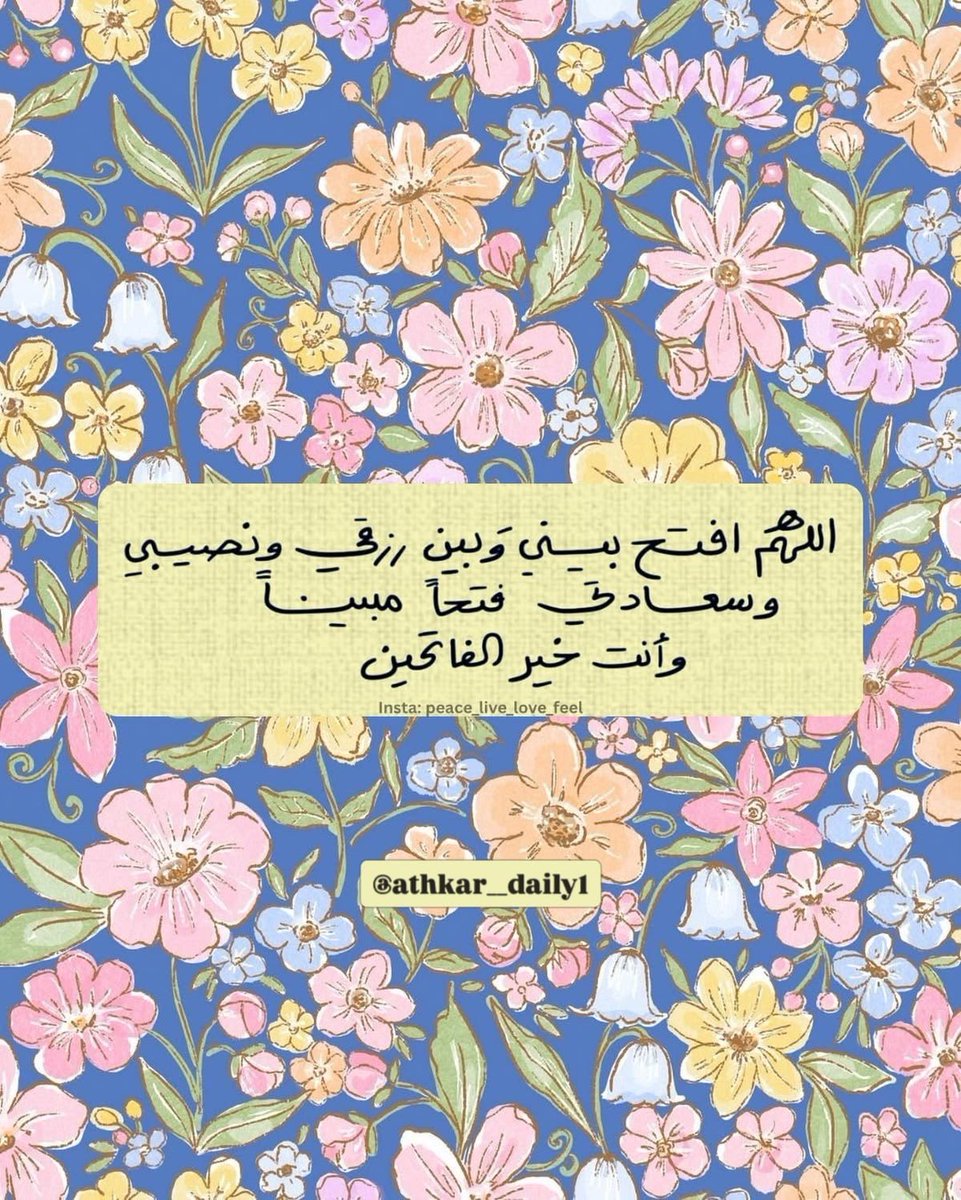 اللهمَّ افتح بيني وَبين رزقي ونصيبي
وسعادتي فتحاً مبيناً
وأنت خير الفاتحين
Insta: peace_live_love_feel
@athkar_daily1